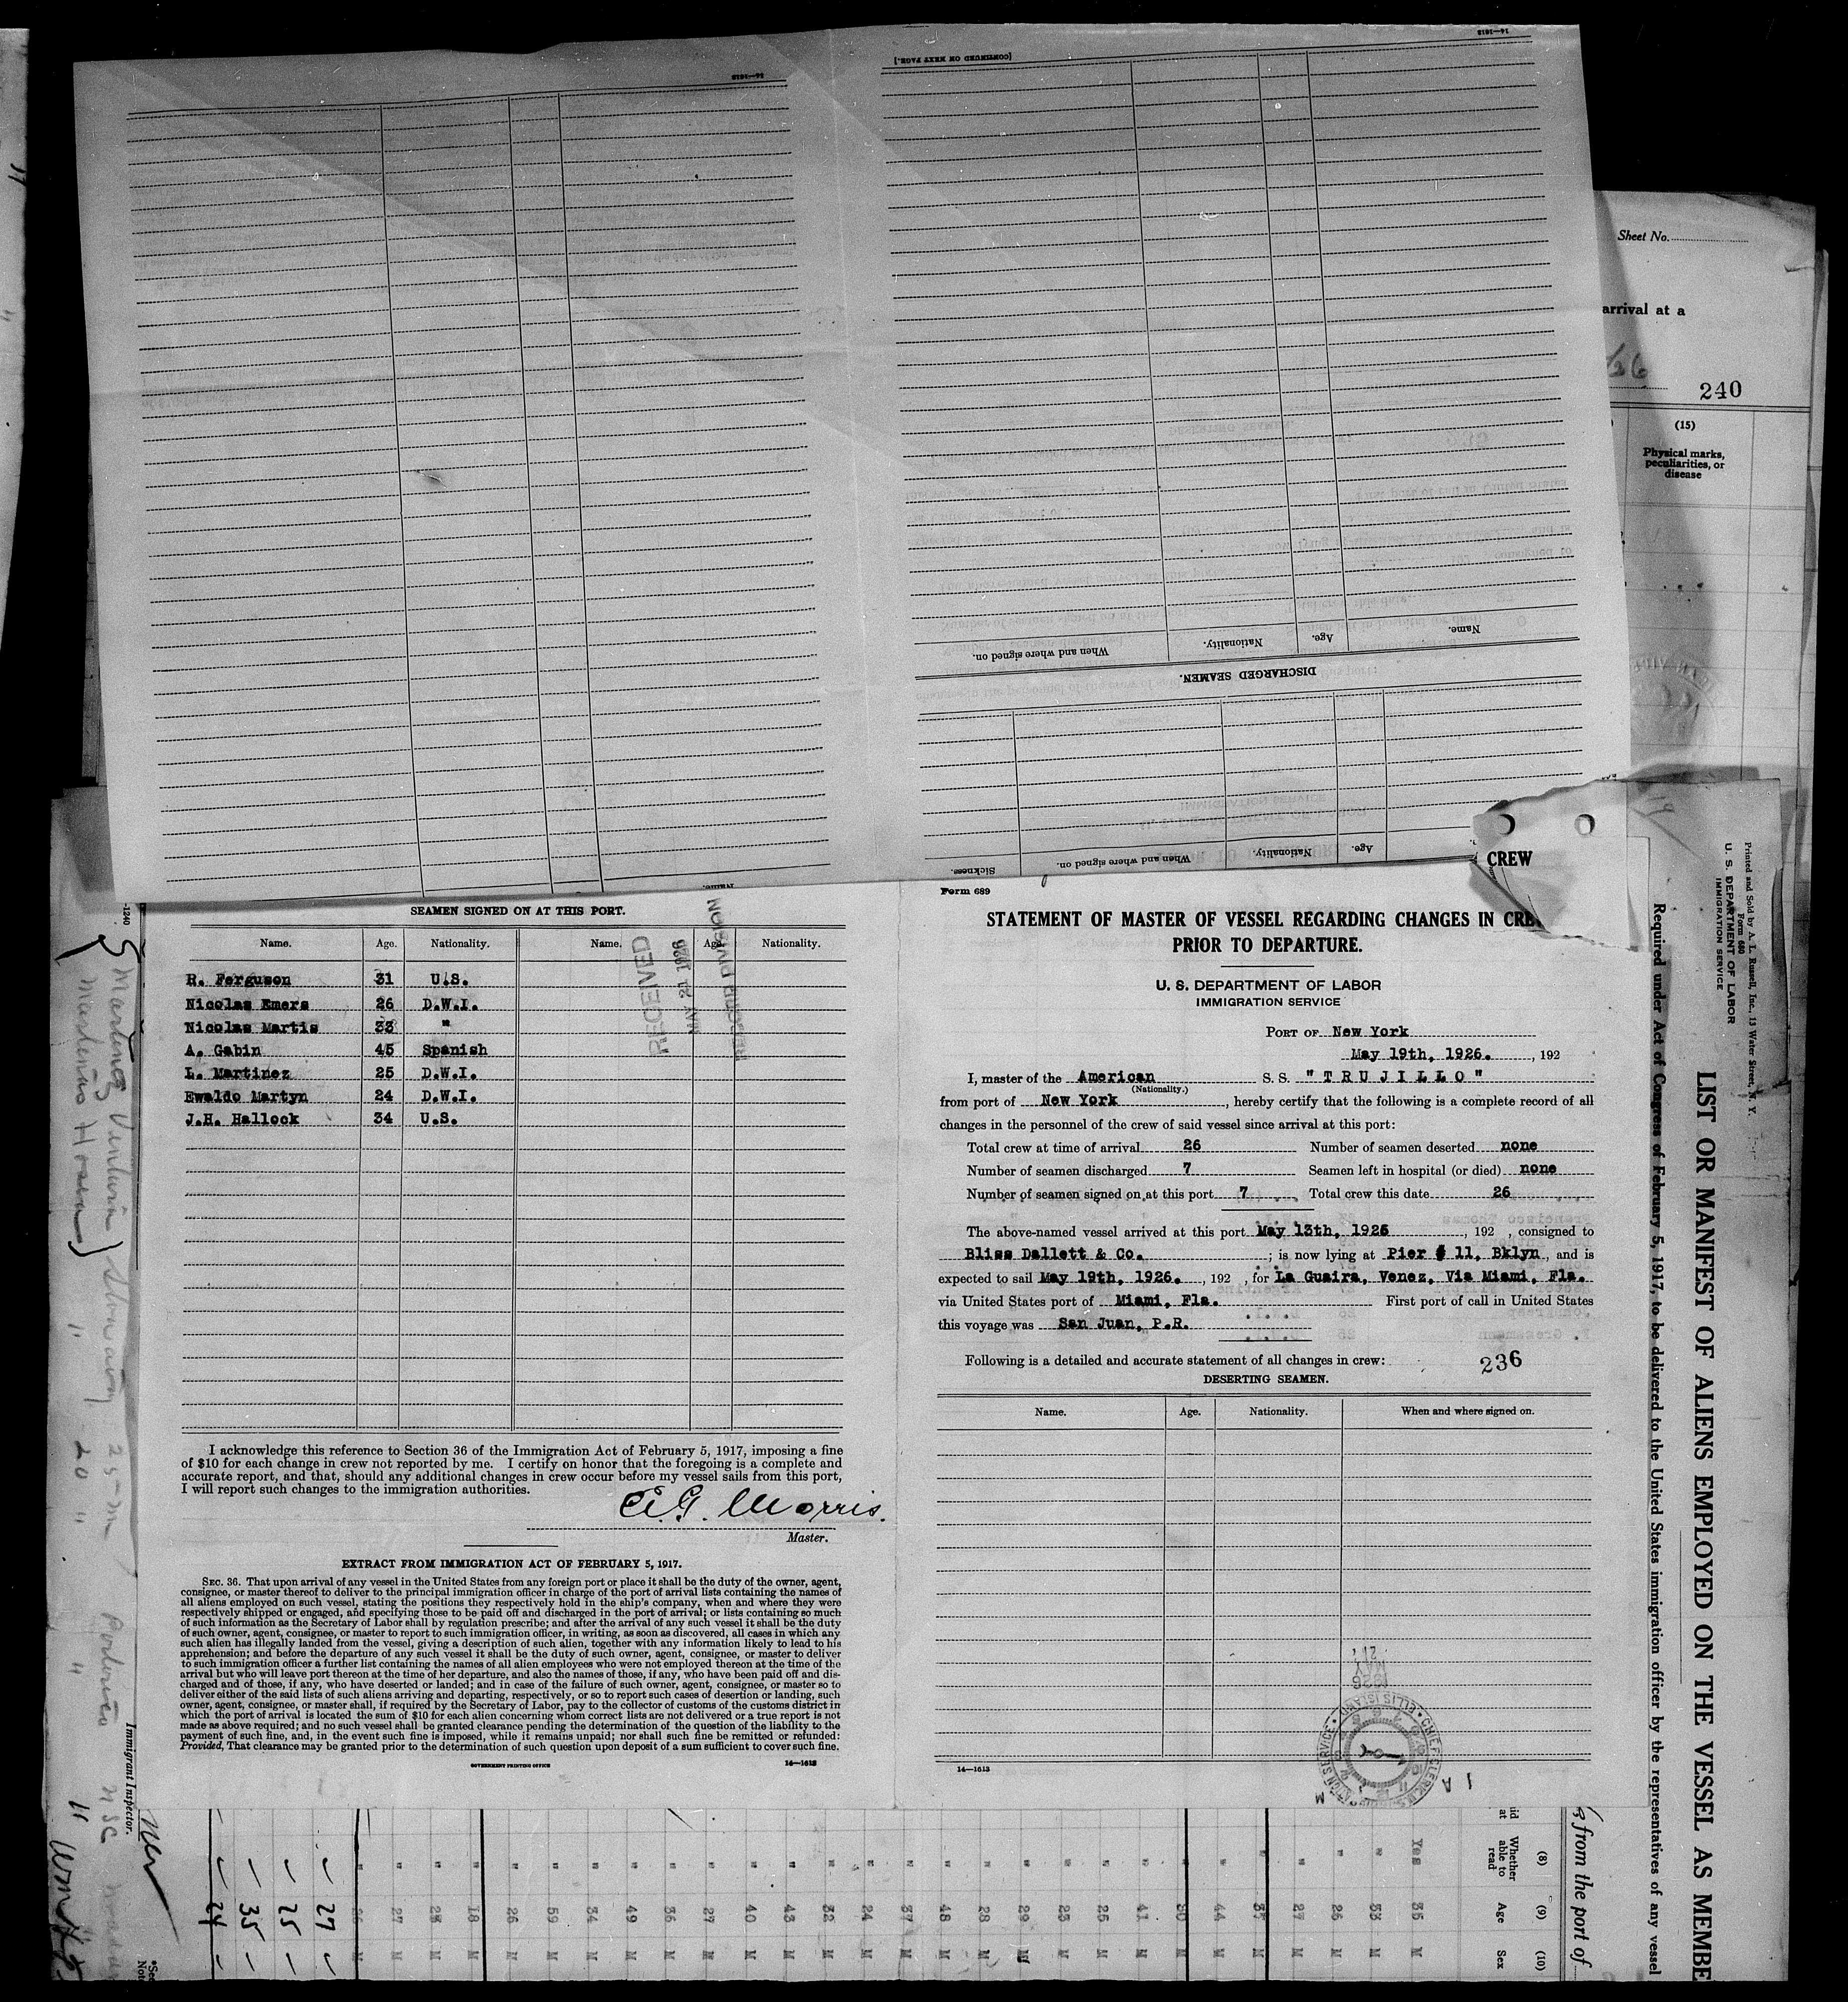 14—1613
[CONTINUED ON NEXT PAGE.]
14—1613
Name.
Age.
Nationality.
When and where signed on.
DISCHARGED SEAMEN.
Age.
Nationality.
When and where signed on.
Sickness.
Sheet No.
arrival at a
240
(15)
Physical marks,
peculiarities, or
disease
CREW
SEAMEN SIGNED ON AT THIS PORT.
Name. Age. Nationality. Name. Age. Nationality.
R. Ferguson 31 U.S.
Nicolas Emers 26 D.W.I.
Nicolas Martis 33 "
A. Gabin 45 Spanish
L. Martinez 25 D.W.I.
Ewaldo Martyn 24 D.W.I.
J.H. Hallock 34 U.S.
RECEIVED
MAY 21 1926
RECORD DIVISION
I acknowledge this reference to Section 36 of the Immigration Act of February 5, 1917, imposing a fine
of $10 for each change in crew not reported by me. I certify on honor that the foregoing is a complete and
accurate report, and that, should any additional changes in crew occur before my vessel sails from this port,
I will report such changes to the immigration authorities.
E.G. Morris.
Master.
EXTRACT FROM IMMIGRATION ACT OF FEBRUARY 5, 1917.
SEC. 36. That upon arrival of any vessel in the United States from any foreign port or place it shall be the duty of the owner, agent,
consignee, or master thereof to deliver to the principal immigration officer in charge of the port of arrival lists containing the names of
all aliens employed on such vessel, stating the positions they respectively hold in the ship's company, when and where they were
respectively shipped or engaged, and specifying those to be paid off and discharged in the port of arrival; or lists containing so much
of such information as the Secretary of Labor shall by regulation prescribe; and after the arrival of any such vessel it shall be the duty
of such owner, agent, consignee, or master to report to such immigration officer, in writing, as soon as discovered, all cases in which any
such alien has illegally landed from the vessel, giving a description of such alien, together with any information likely to lead to his
apprehension; and before the departure of any such vessel it shall be the duty of such owner, agent, consignee, or master to deliver
to such immigration officer a further list containing the names of all alien employees who were not employed thereon at the time of the
arrival but who will leave port thereon at the time of her departure, and also the names of those, if any, who have been paid off and dis-
charged and of those, if any, who have deserted or landed; and in case of the failure of such owner, agent, consignee, or master so to
deliver either of the said lists of such aliens arriving and departing, respectively, or so to report such cases of desertion or landing, such
owner, agent, consignee, or master shall, if required by the Secretary of Labor, pay to the collector of customs of the customs district in
which the port of arrival is located the sum of $10 for each alien concerning whom correct lists are not delivered or a true report is not
made as above required; and no such vessel shall be granted clearance pending the determination of the question of the liability to the
payment of such fine, and, in the event such fine is imposed, while it remains unpaid; nor shall such fine be remitted or refunded:
Provided, That clearance may be granted prior to the determination of such question upon deposit of a sum sufficient to cover such fine.
GOVERNMENT PRINTING OFFICE 14—1613
Form 689
STATEMENT OF MASTER OF VESSEL REGARDING CHANGES IN CRE
PRIOR TO DEPARTURE.
U. S. DEPARTMENT OF LABOR
IMMIGRATION SERVICE
PORT OF New York
May 19th, 1926. , 192
I, master of the American S. S. "TRUJILLO"
(Nationality.)
from port of New York , hereby certify that the following is a complete record of all
changes in the personnel of the crew of said vessel since arrival at this port:
Total crew at time of arrival 26 Number of seamen deserted none
Number of seamen discharged 7 Seamen left in hospital (or died) none
Number of seamen signed on at this port 7 Total crew this date 26
The above-named vessel arrived at this port May 13th, 1926 , 192 , consigned to
Bliss Dallett & Co. ; is now lying at Pier # 11, Bklyn , and is
expected to sail May 19th, 1926. , 192 , for La Guaira, Venez, Via Miami, Fla.
via United States port of Miami, Fla. First port of call in United States
this voyage was San Juan, P.R.
Following is a detailed and accurate statement of all changes in crew: 236
DESERTING SEAMEN.
Name. Age. Nationality. When and where signed on.
14—1613
Printed and Sold by A. L. Russell, Inc., 13 Water Street, N. Y.
Form 680
U. S. DEPARTMENT OF LABOR
IMMIGRATION SERVICE
LIST OR MANIFEST OF ALIENS EMPLOYED ON THE VESSEL AS MEMBE
Required under Act of Congress of February 5, 1917, to be delivered to the United States immigration officer by the representatives of any vessel
from the port of
(8) (9) (10)
Whether able to read Age Sex
Yes 35 M
" 33 M
" 26 M
" 27 M
" 44 M
" 41 M
" 25 M
" 23 M
" 29 M
" 28 M
" 48 M
" 37 M
" 24 M
" 32 M
" 43 M
" 40 M
" 27 M
" 36 M
" 49 M
" 34 M
" 59 M
" 26 M
" 18 M
" 27 M
27
25
35
24
Immigrant Inspector.